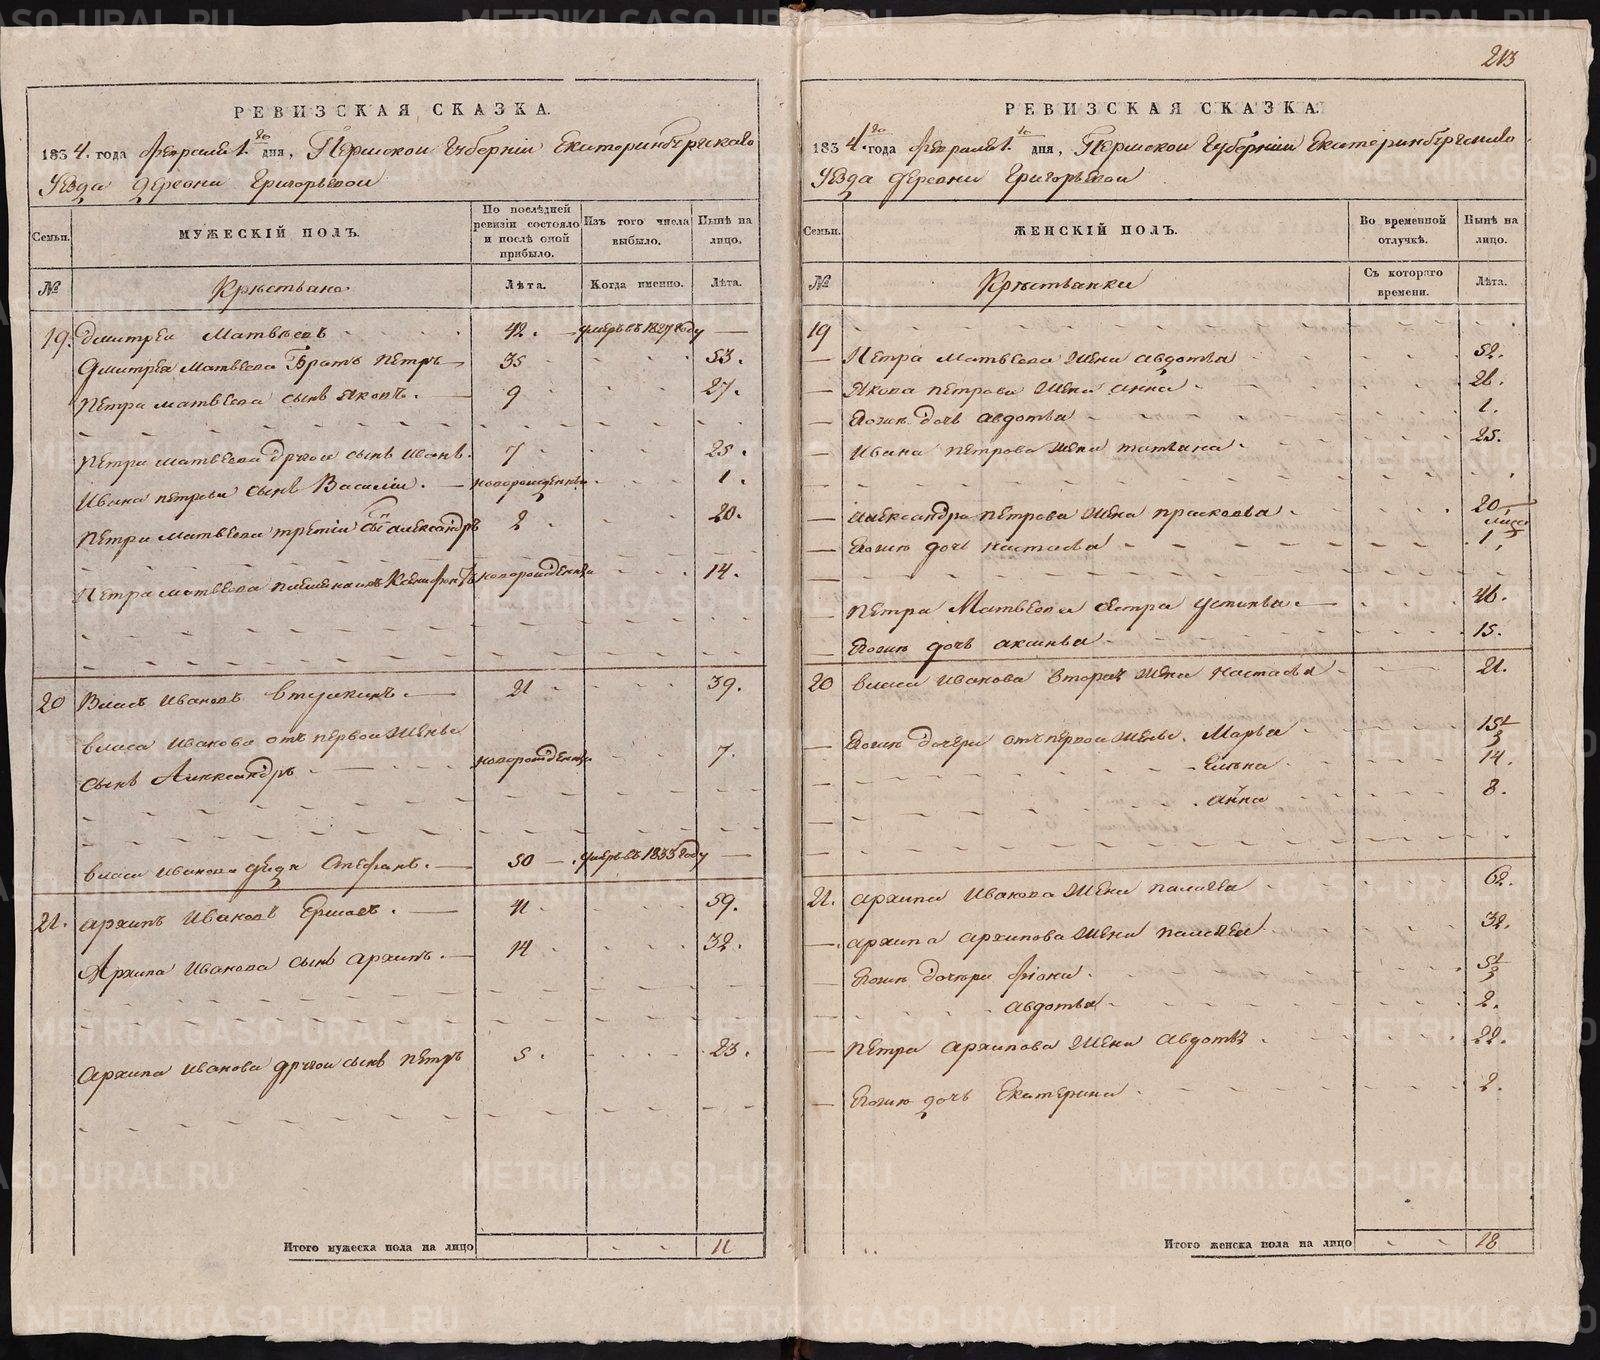 213
РЕВИЗСКАЯ СКАЗКА.
1834. года февраля 1.го дня, Пермской Губернии Екатеринбургскаго
Уѣзда деревни Григорьевой
Семьи.
МУЖЕСКІЙ ПОЛЪ.
По послѣдней ревизіи состояло и послѣ оной прибыло.
Изъ того числа выбыло.
Нынѣ на лицо.
№ Крестьяне Лѣта. Когда именно. Лѣта.
19. Дмитреи Матвѣевъ 42. умеръ въ 1827 году
Дмитрея Матвѣева Братъ Петръ 35 53.
Петра Матвѣева сынъ Яковъ. 9 27.
Петра Матвѣева другои сынъ Иванъ. 7 25.
Ивана Петрова сынъ Василіи. новорожденны 1.
Петра Матвѣева третіи сынъ Александръ 2 20.
Петра Матвѣева племянникъ Ксенофонтъ новорожденны 14.
20 Власъ Ивановъ Втушкинъ. 21 39.
Власа Иванова отъ первои жены
сынъ Александръ новорожденны 7.
Власа Иванова дядя Стефанъ. 50 умеръ въ 1833 году
21. Архипъ Ивановъ Ершовъ. 41 59.
Архипа Иванова сынъ Архипъ. 14 32.
Архипа Иванова другои сынъ Петръ 5. 23.
Итого мужеска пола на лицо 11
РЕВИЗСКАЯ СКАЗКА.
1834.го года февраля 1.го дня, Пермской Губерніи Екатеринбургскаго
Уѣзда деревни Григорьевой
Семьи.
ЖЕНСКІЙ ПОЛЪ.
Во временной отлучкѣ.
Нынѣ на лицо.
№ Крестьянки Съ котораго времени. Лѣта.
19
Петра Матвѣева жена Авдотья 52.
Якова Петрова жена Анна 26.
Еогию дочь Авдотья 1.
Ивана Петрова жена Татьяна 25.
Александра Петрова жена Прасковья 20
Еогию дочь Настасья 1 мѣся
Петра Матвѣева сестра Устинья. 46.
Еогию дочь Аксинья 15.
20 Власа Иванова вторая жена Настасья 21.
Еогию дочери отъ первои жены. Марья 15 1/3
Елена 14.
Анна 8.
21. Архипа Иванова жена Палагея 62.
Архипа Архипова жена Палагея 32.
Еогию дочери Фіона 5 1/3
Авдотья 2.
Петра Архипова жена Авдотья 22.
Еогию дочь Екатерина 2.
Итого женска пола на лицо 18
METRIKI.GASO-URAL.RU